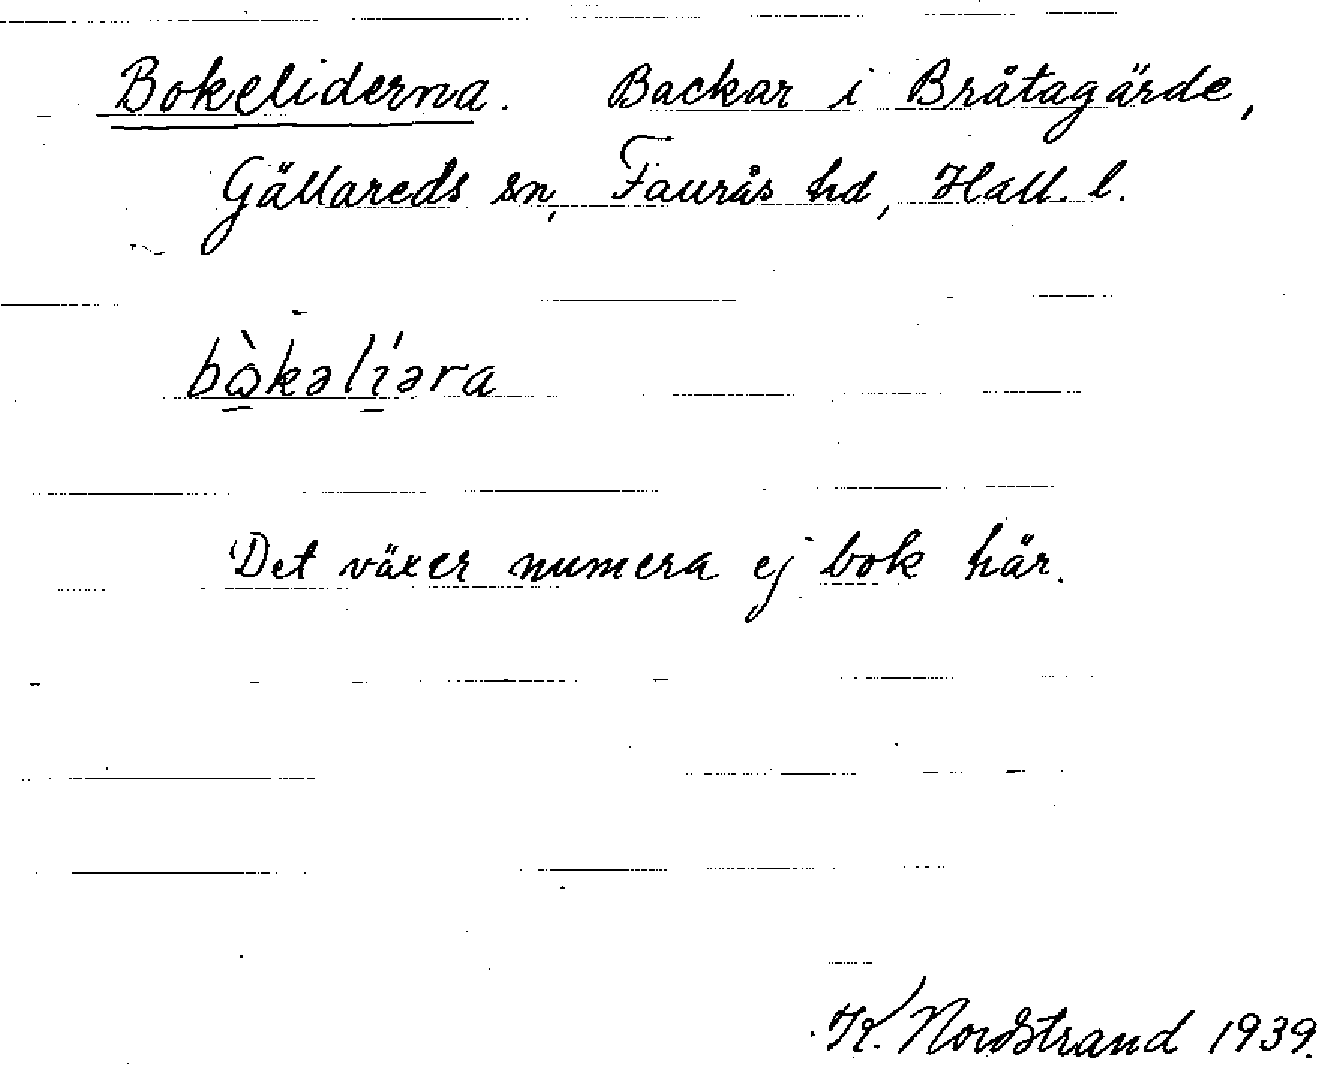 Bokeliderna. Backar i Bråtagärde,
Gällareds sn, Faurås hd, Hall. l.
bò̱kəlí̱əra
Det växer numera ej bok här.
K. Nordstrand 1939.